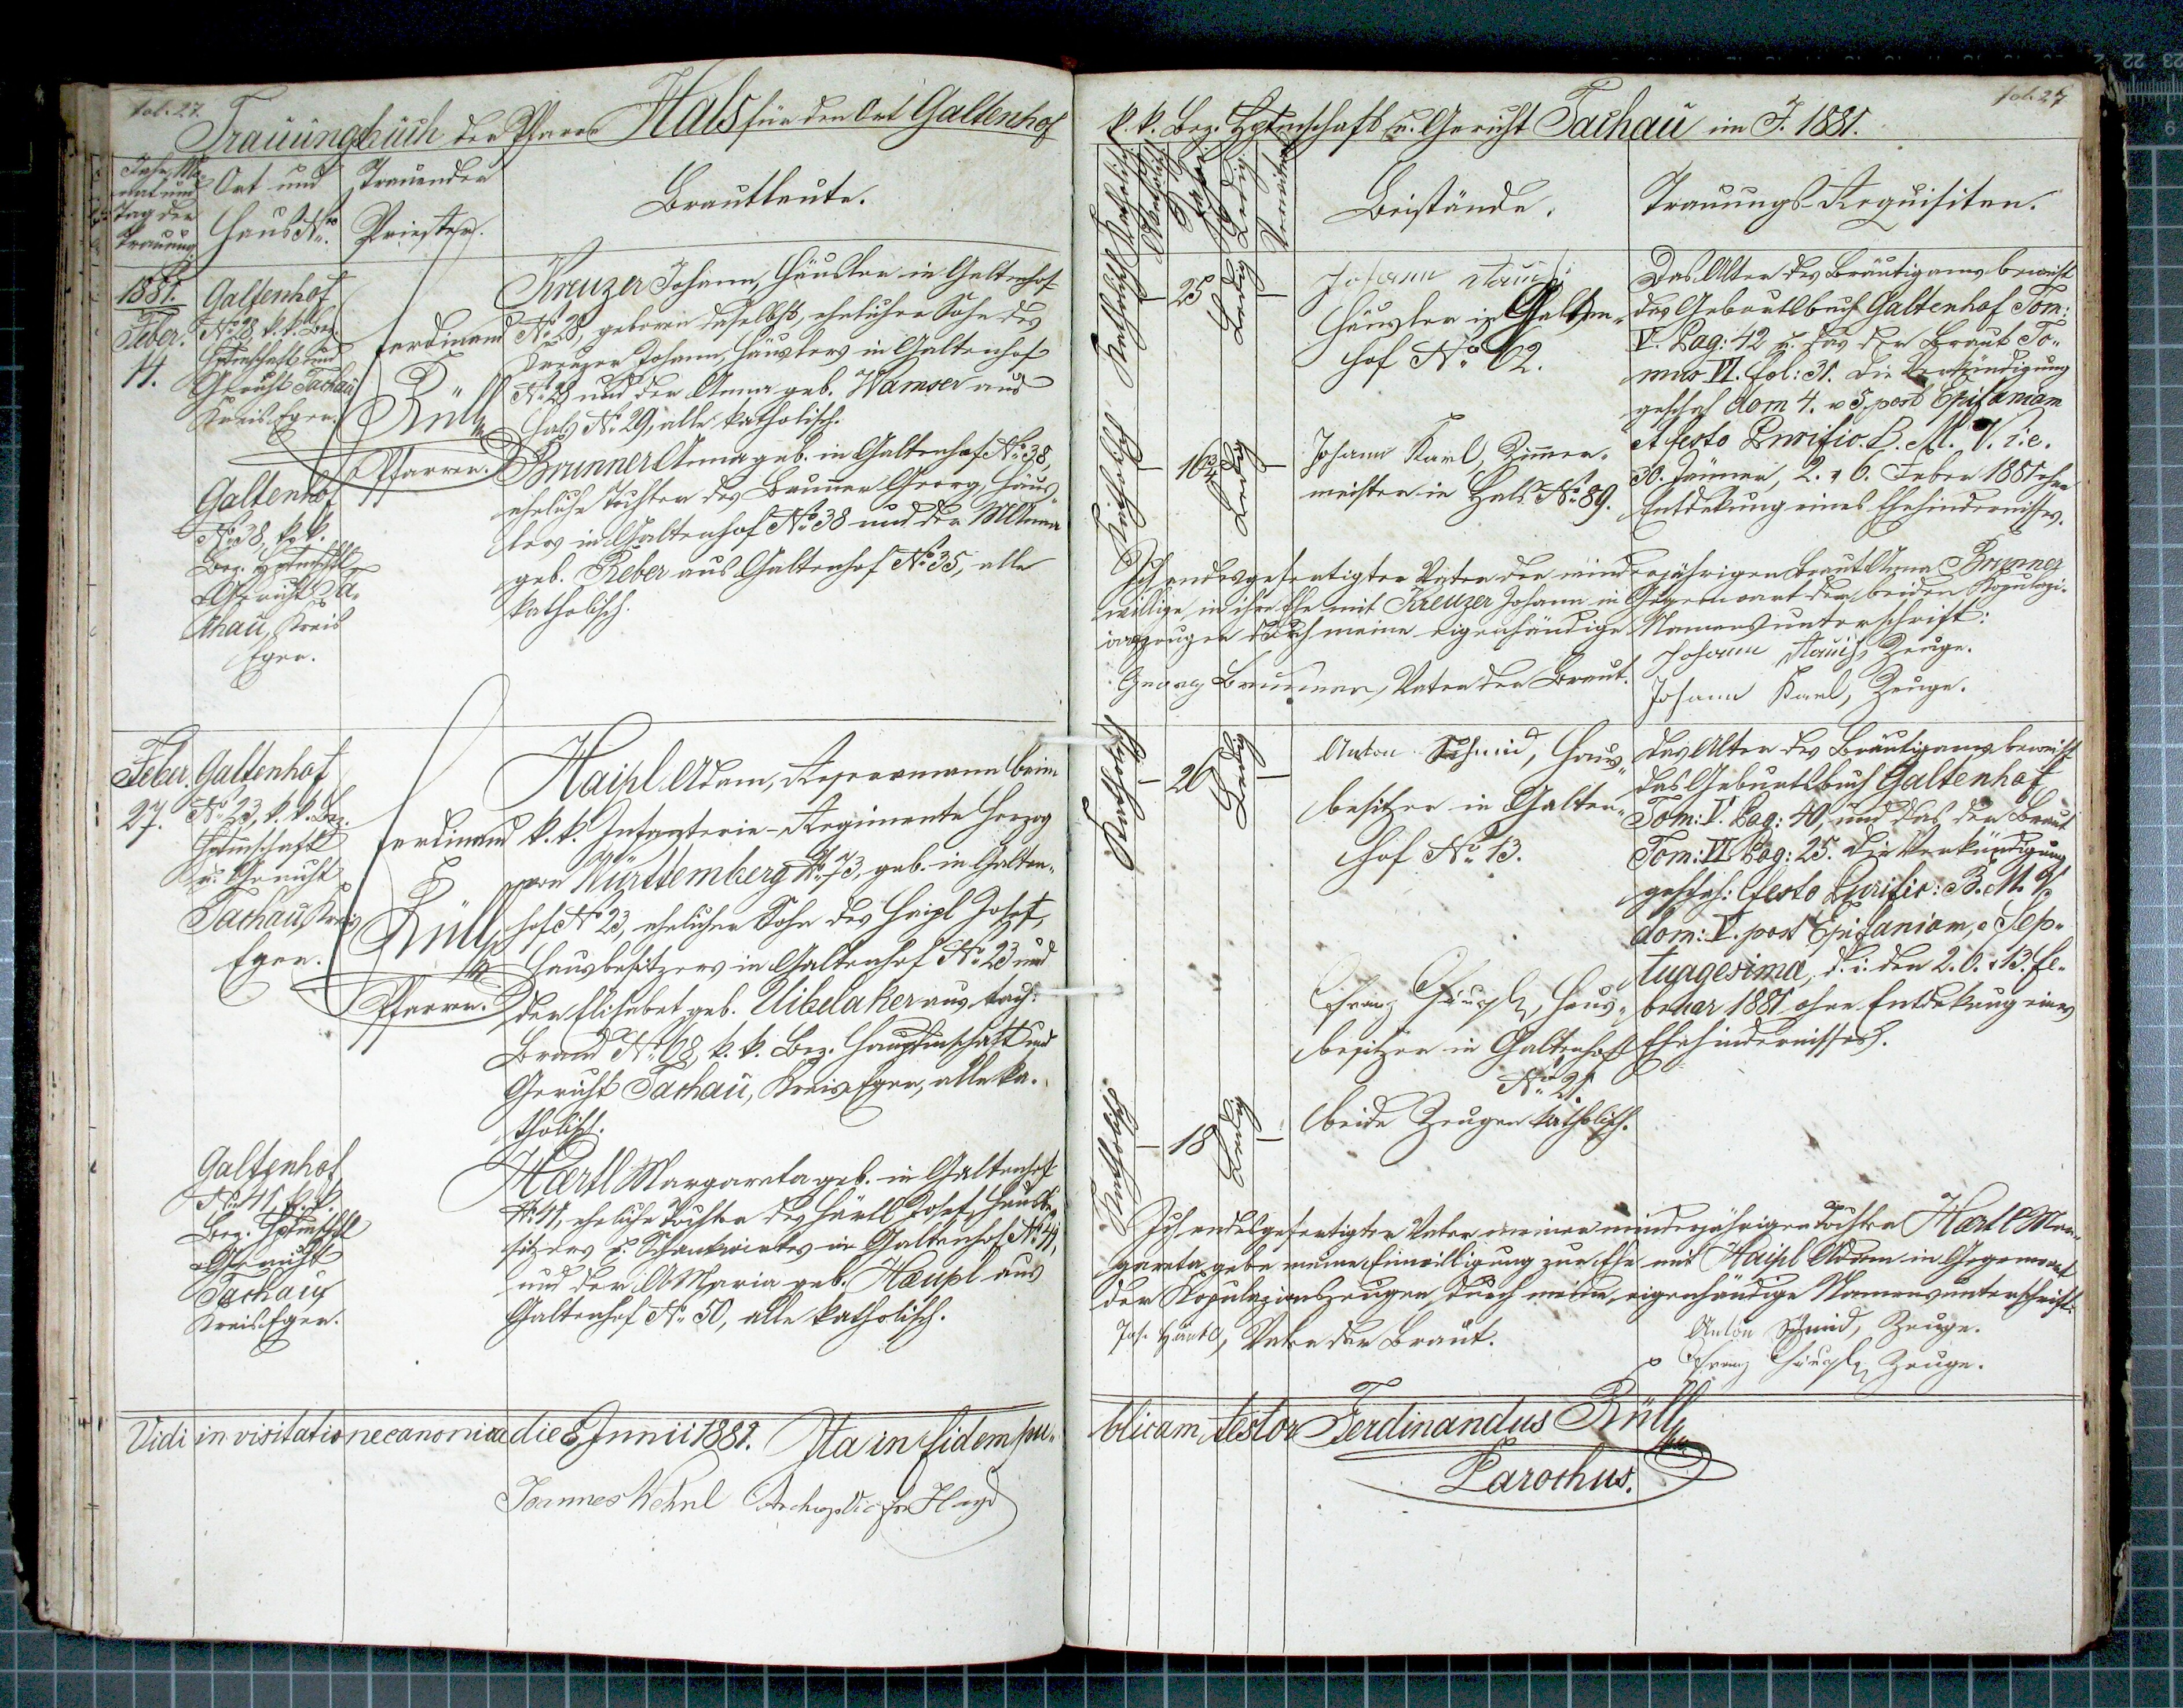 fol. 27.
Trauungsbuch der Pfarre Hals für den Ort Galtenhof
Jahr, Mo-
nat und
Tag der
Trauung
Ort und
Haus No.
Trauender
Priester.
Brautleute.
1881.
Feber.
14.
Galtenhof
No. 28 k. k. Bez.
Hptmschaft und
Gericht Tachau
Kreis Eger.
Ferdinand
Rüll
Pfarrer.
Kreuzer Johann, Häusler in Galtenhof
No. 28, geboren daselbst, ehelicher Sohn des
Kreuzer Johann, Häuslers in Galtenhof
No. 28 und der Anna geb. Wamser aus
Hals No. 29, alle katholisch.
Galtenhof
No. 38, k. k.
Bez. Hptmschft
Gericht Ta-
chau, Kreis
Eger.
Brunner Anna geb. in Galtenhof No. 38,
eheliche Tochter des Brunner Georg, Häus-
lers in Galtenhof No. 38 und der M Anna
geb. Reber aus Galtenhof No. 35, alle
katholisch.
Feber.
27.
Galtenhof
No. 23, k. k. Bez.
Hptmschaft
u. Gericht
Tachau, Kreis
Eger.
Ferdinand
Rüll
Pfarrer.
Haipl Adam, Reservemann beim
k. k. Infanterie-Regimente Herzog
von Württemberg No. 73, geb. in Galten-
hof No. 23, ehelicher Sohn des Haipl Josef,
Hausbesitzers in Galtenhof No. 23 und
der Elisabet geb. Uibelaker aus Tach.
Brand No. 68, k. k. Bez. Hauptmschaft und
Gericht Tachau, Kreis Eger, alle ka-
tholisch.
Galtenhof
No. 41, k. k.
Bez. Hptmschft
Gericht
Tachau,
Kreis Eger.
Härtl Margareta geb. in Galtenhof
No. 41, eheliche Tochter des Härtl Josef, Hausbe-
sitzers u. Schankwirtes in Galtenhof No. 41,
und der A Maria geb. Haipl aus
Galtenhof No. 50, alle katholisch.
Vidi in visitatione canonica die 8 Junii 1881. Ita in fidem pu-
Joannes Wehnl
fol. 27
k. k. Bez. Hptmschaft u. Gericht Tachau im J. 1881.
Katholisch
Jahre
Ledig
Verwitwet
Beistände.
Trauungs-Requisiten.
Katholisch
25
Ledig
Johann
Häusler in Galten-
hof No. 62.
Das Alter des Bräutigams beweist
das Geburtsbuch Galtenhof Tom:
V. Pag: 42 u. das der Braut To-
mus VI. Fol: 31. Die Verkündigung
geschah dom 4. u 5. post Epifaniam
et festo Purific. B. M. V. i. e.
30. Jänner, 2. u 6. Feber 1881 ohne
Entdekung eines Ehehindernisses.
Katholisch
16
Ledig
Johann Karl, Zimmer-
meister in Hals No. 89.
Ich endesgefertigter Vater der minderjährigen Braut Anna Brunner
willige in ihre Ehe mit Kreuzer Johann in Gegenwart der beiden Kopulazi-
onszeugen durch meine eigenhändige Namensunterschrift:
Georg Brunner, Vater der Braut.
Johann Zeuge.
Johann Karl, Zeuge.
Katholisch
26
Ledig
Anton Schmid, Haus-
besitzer in Galten-
hof No. 13.
Das Alter des Bräutigams beweist
das Geburtsbuch Galtenhof
Tom: V. Pag: 40, und das der Braut
Tom: VI Pag: 25. Die Verkündigung
geschah: festo Purific: B. M. V,
dom: V. post Epifaniam, Sep-
tuagesima, d. i. den 2. 6. u 13. Fe-
bruar 1881 ohne Entdekung eines
Ehehindernisses.
Franz Haupl, Haus-
besitzer in Galtenhof
No. 21.
beide Zeugen katholisch.
Katholisch
18
Ledig
Ich endesgefertigter Vater meiner minderjährigen Tochter Härtl Mar-
gareta gebe meine Einwilligung zur Ehe mit Haipl Adam in Gegenwart
der Kopulazionszeugen durch meine eigenhändige Namensunterschrift:
Jos. Härtl, Vater der Braut.
Anton Schmid, Zeuge.
Franz Haupl Zeuge.
blicam testor Ferdinandus Rüll
Parochus.